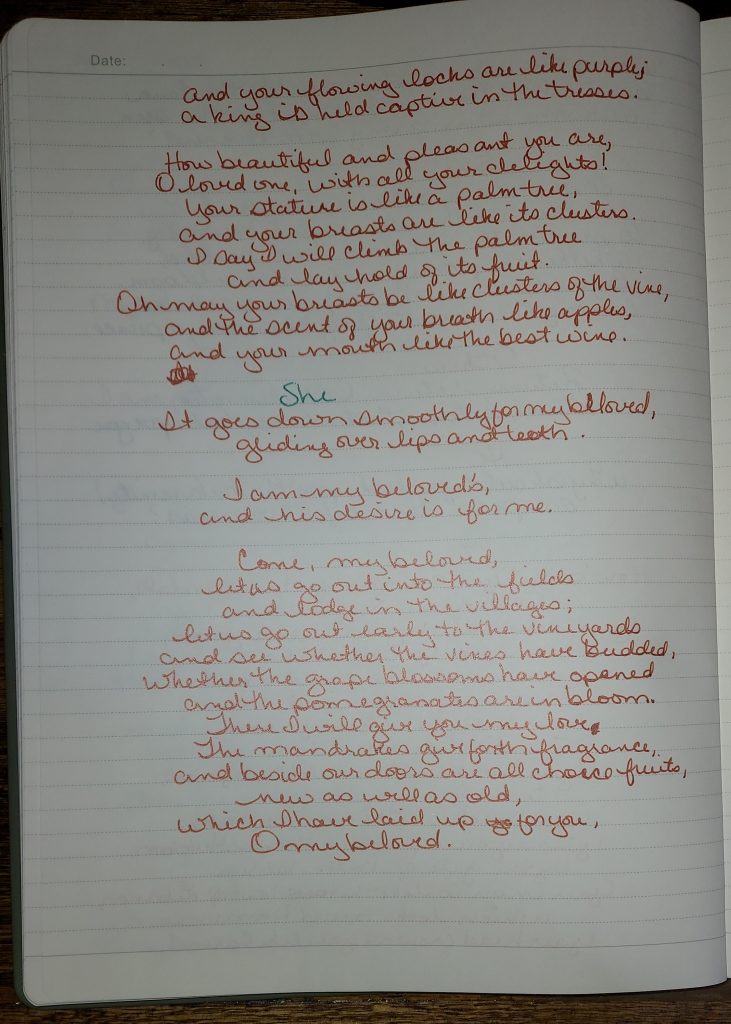 Date:
and your flowing locks are like purple;
a king is held captive in the tresses.
How beautiful and pleasant you are,
O loved one, with all your delights!
Your stature is like a palm tree,
and your breasts are like its clusters.
I say I will climb the palm tree
and lay hold of its fruit.
Oh may your breasts be like clusters of the vine,
and the scent of your breath like apples,
and your mouth like the best wine.
She
It goes down smoothly for my beloved,
gliding over lips and teeth.
I am my beloved's,
and his desire is for me.
Come, my beloved,
let us go out into the fields
and lodge in the villages;
let us go out early to the vineyards
and see whether the vines have budded,
whether the grape blossoms have opened
and the pomegranates are in bloom.
There I will give you my love.
The mandrakes give forth fragrance,
and beside our doors are all choice fruits,
new as well as old,
which I have laid up for you,
O my beloved.